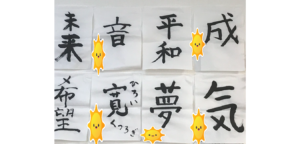 未来
音
平和
成
希望
寛
ひろい
くつろぎ
夢
気